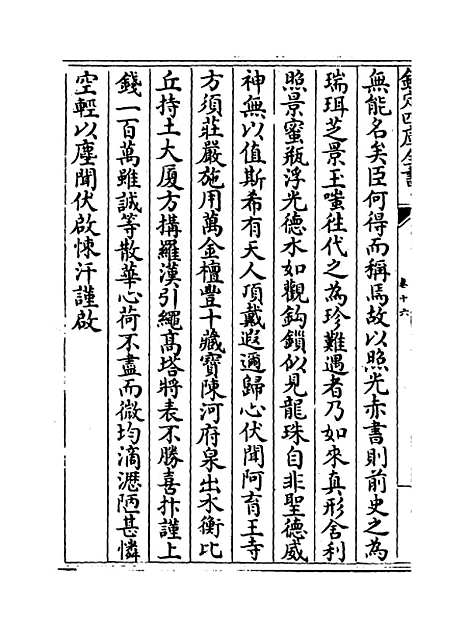 欽定四庫全書
卷十六
無能名矣臣何得而稱焉故以照光赤書則前史之為
瑞珥芝景玉嗤徃代之為珍難遇者乃如來真形舍利
照景蜜瓶浮光德水如觀鈎鎖似見龍珠自非聖德威
神無以值斯希有天人頂戴遐邇歸心伏聞阿育王寺
方須莊嚴施用萬金檀豐十藏寶陳河府泉出水衡比
丘持土大厦方搆羅漢引繩髙塔將表不勝喜抃謹上
錢一百萬雖誠等散華心荷不盡而微均滴瀝陋甚憐
空輕以塵聞伏啟悚汗謹啟